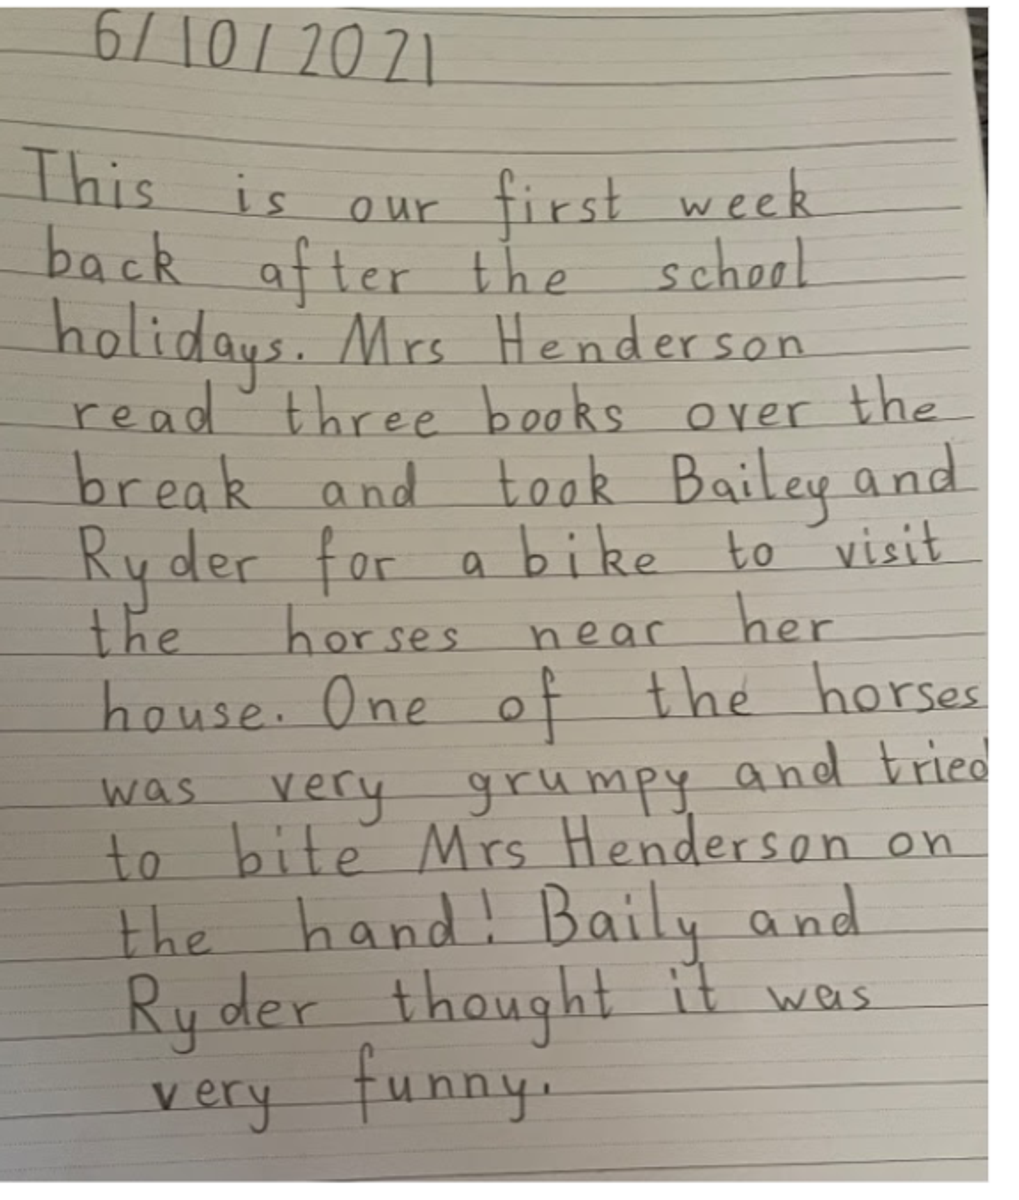 6/10/2021
This is our first week
back after the school
holidays. Mrs Henderson
read three books over the
break and took Bailey and
Ryder for a bike to visit
the horses near her
house. One of the horses
was very grumpy and tried
to bite Mrs Henderson on
the hand! Baily and
Ryder thought it was
very funny.